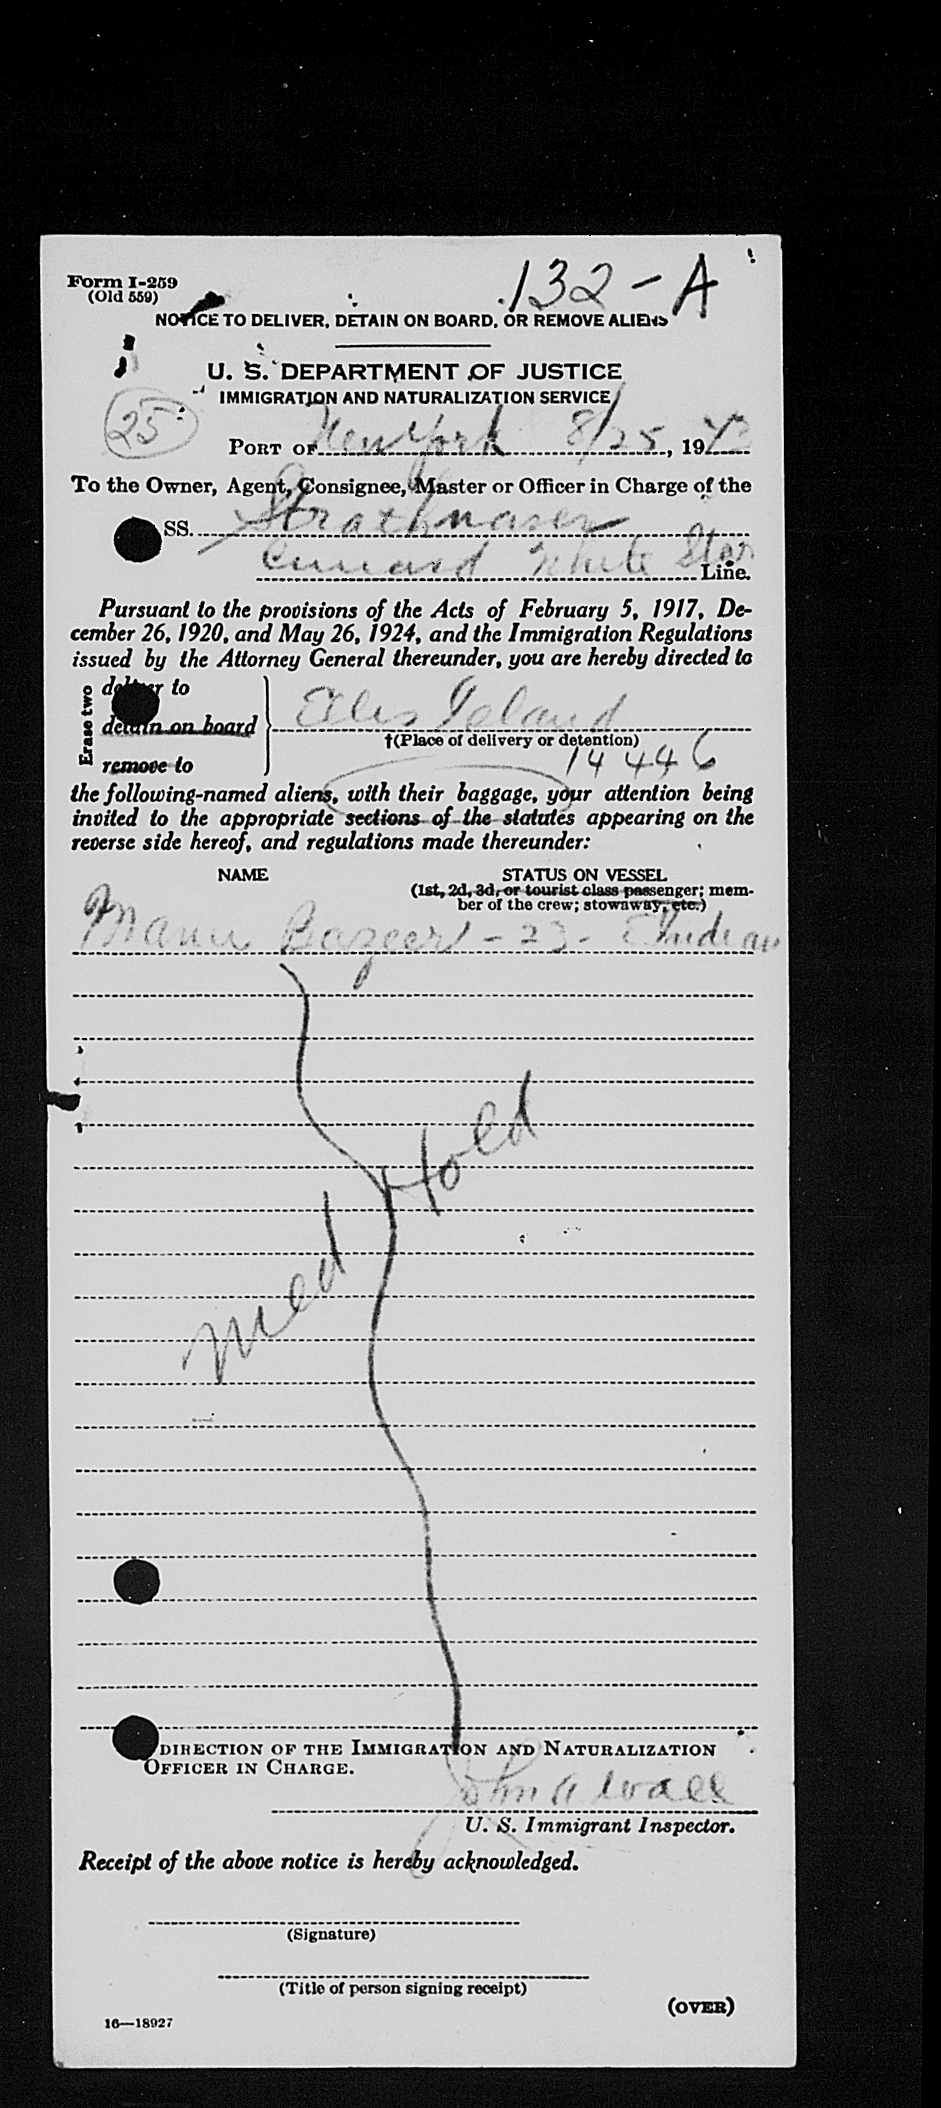 Form I-259
(Old 559)
132-A
NOTICE TO DELIVER, DETAIN ON BOARD, OR REMOVE ALIENS
U. S. DEPARTMENT OF JUSTICE
IMMIGRATION AND NATURALIZATION SERVICE
25
PORT OF New York 8/25, 1943
To the Owner, Agent, Consignee, Master or Officer in Charge of the
SS. Strathnaver
Cunard White Star Line.
Pursuant to the provisions of the Acts of February 5, 1917, De-
cember 26, 1920, and May 26, 1924, and the Immigration Regulations
issued by the Attorney General thereunder, you are hereby directed to
Erase two
deliver to
detain on board
remove to
Ellis Island
†(Place of delivery or detention)
14446
the following-named aliens, with their baggage, your attention being
invited to the appropriate sections of the statutes appearing on the
reverse side hereof, and regulations made thereunder:
NAME
STATUS ON VESSEL
(1st, 2d, 3d, or tourist class passenger; mem-
ber of the crew; stowaway, etc.)
Bazeer - 23 - Indian
Med Hold
DIRECTION OF THE IMMIGRATION AND NATURALIZATION
OFFICER IN CHARGE.
John A Wall
U. S. Immigrant Inspector.
Receipt of the above notice is hereby acknowledged.
(Signature)
(Title of person signing receipt)
(OVER)
16—18927